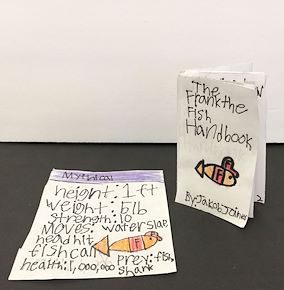 Mythical
height: 1 ft
weight: 5 lb
strength: 10
Moves: waterslae
headhit
fishcall
prey: fish
health: 1,000,000 shark
F
The
Frankthe
Fish
Handbook
F
By: Jakob Joines